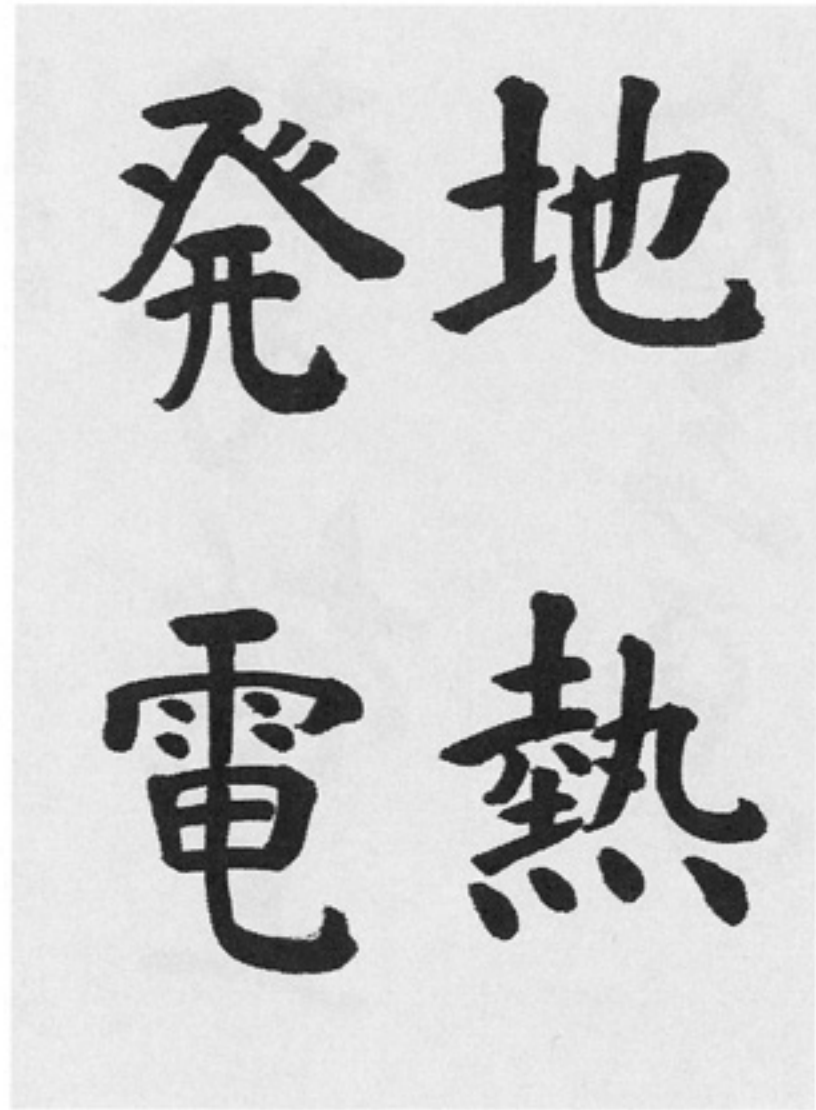 地熱
発電